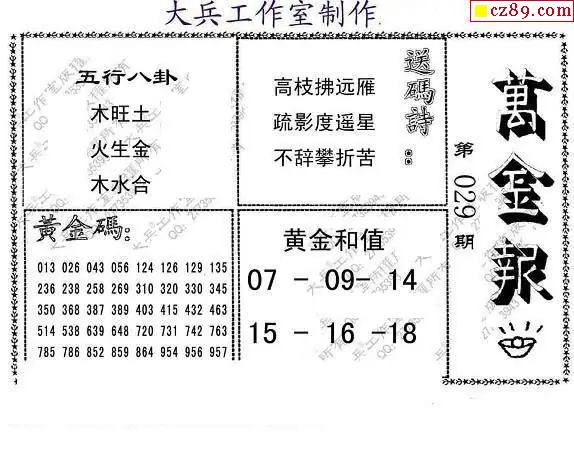 cz89.com
大兵工作室制作
五行八卦
木旺土
火生金
木水合
送碼詩：
高枝拂远雁
疏影度遥星
不辞攀折苦
萬金報
第 029 期
黃金碼：
013 026 043 056 124 126 129 135
236 238 258 269 310 320 330 345
350 368 387 389 403 415 432 463
514 538 639 648 720 731 742 763
785 786 852 859 864 954 956 957
黄金和值
07 - 09- 14
15 - 16 -18